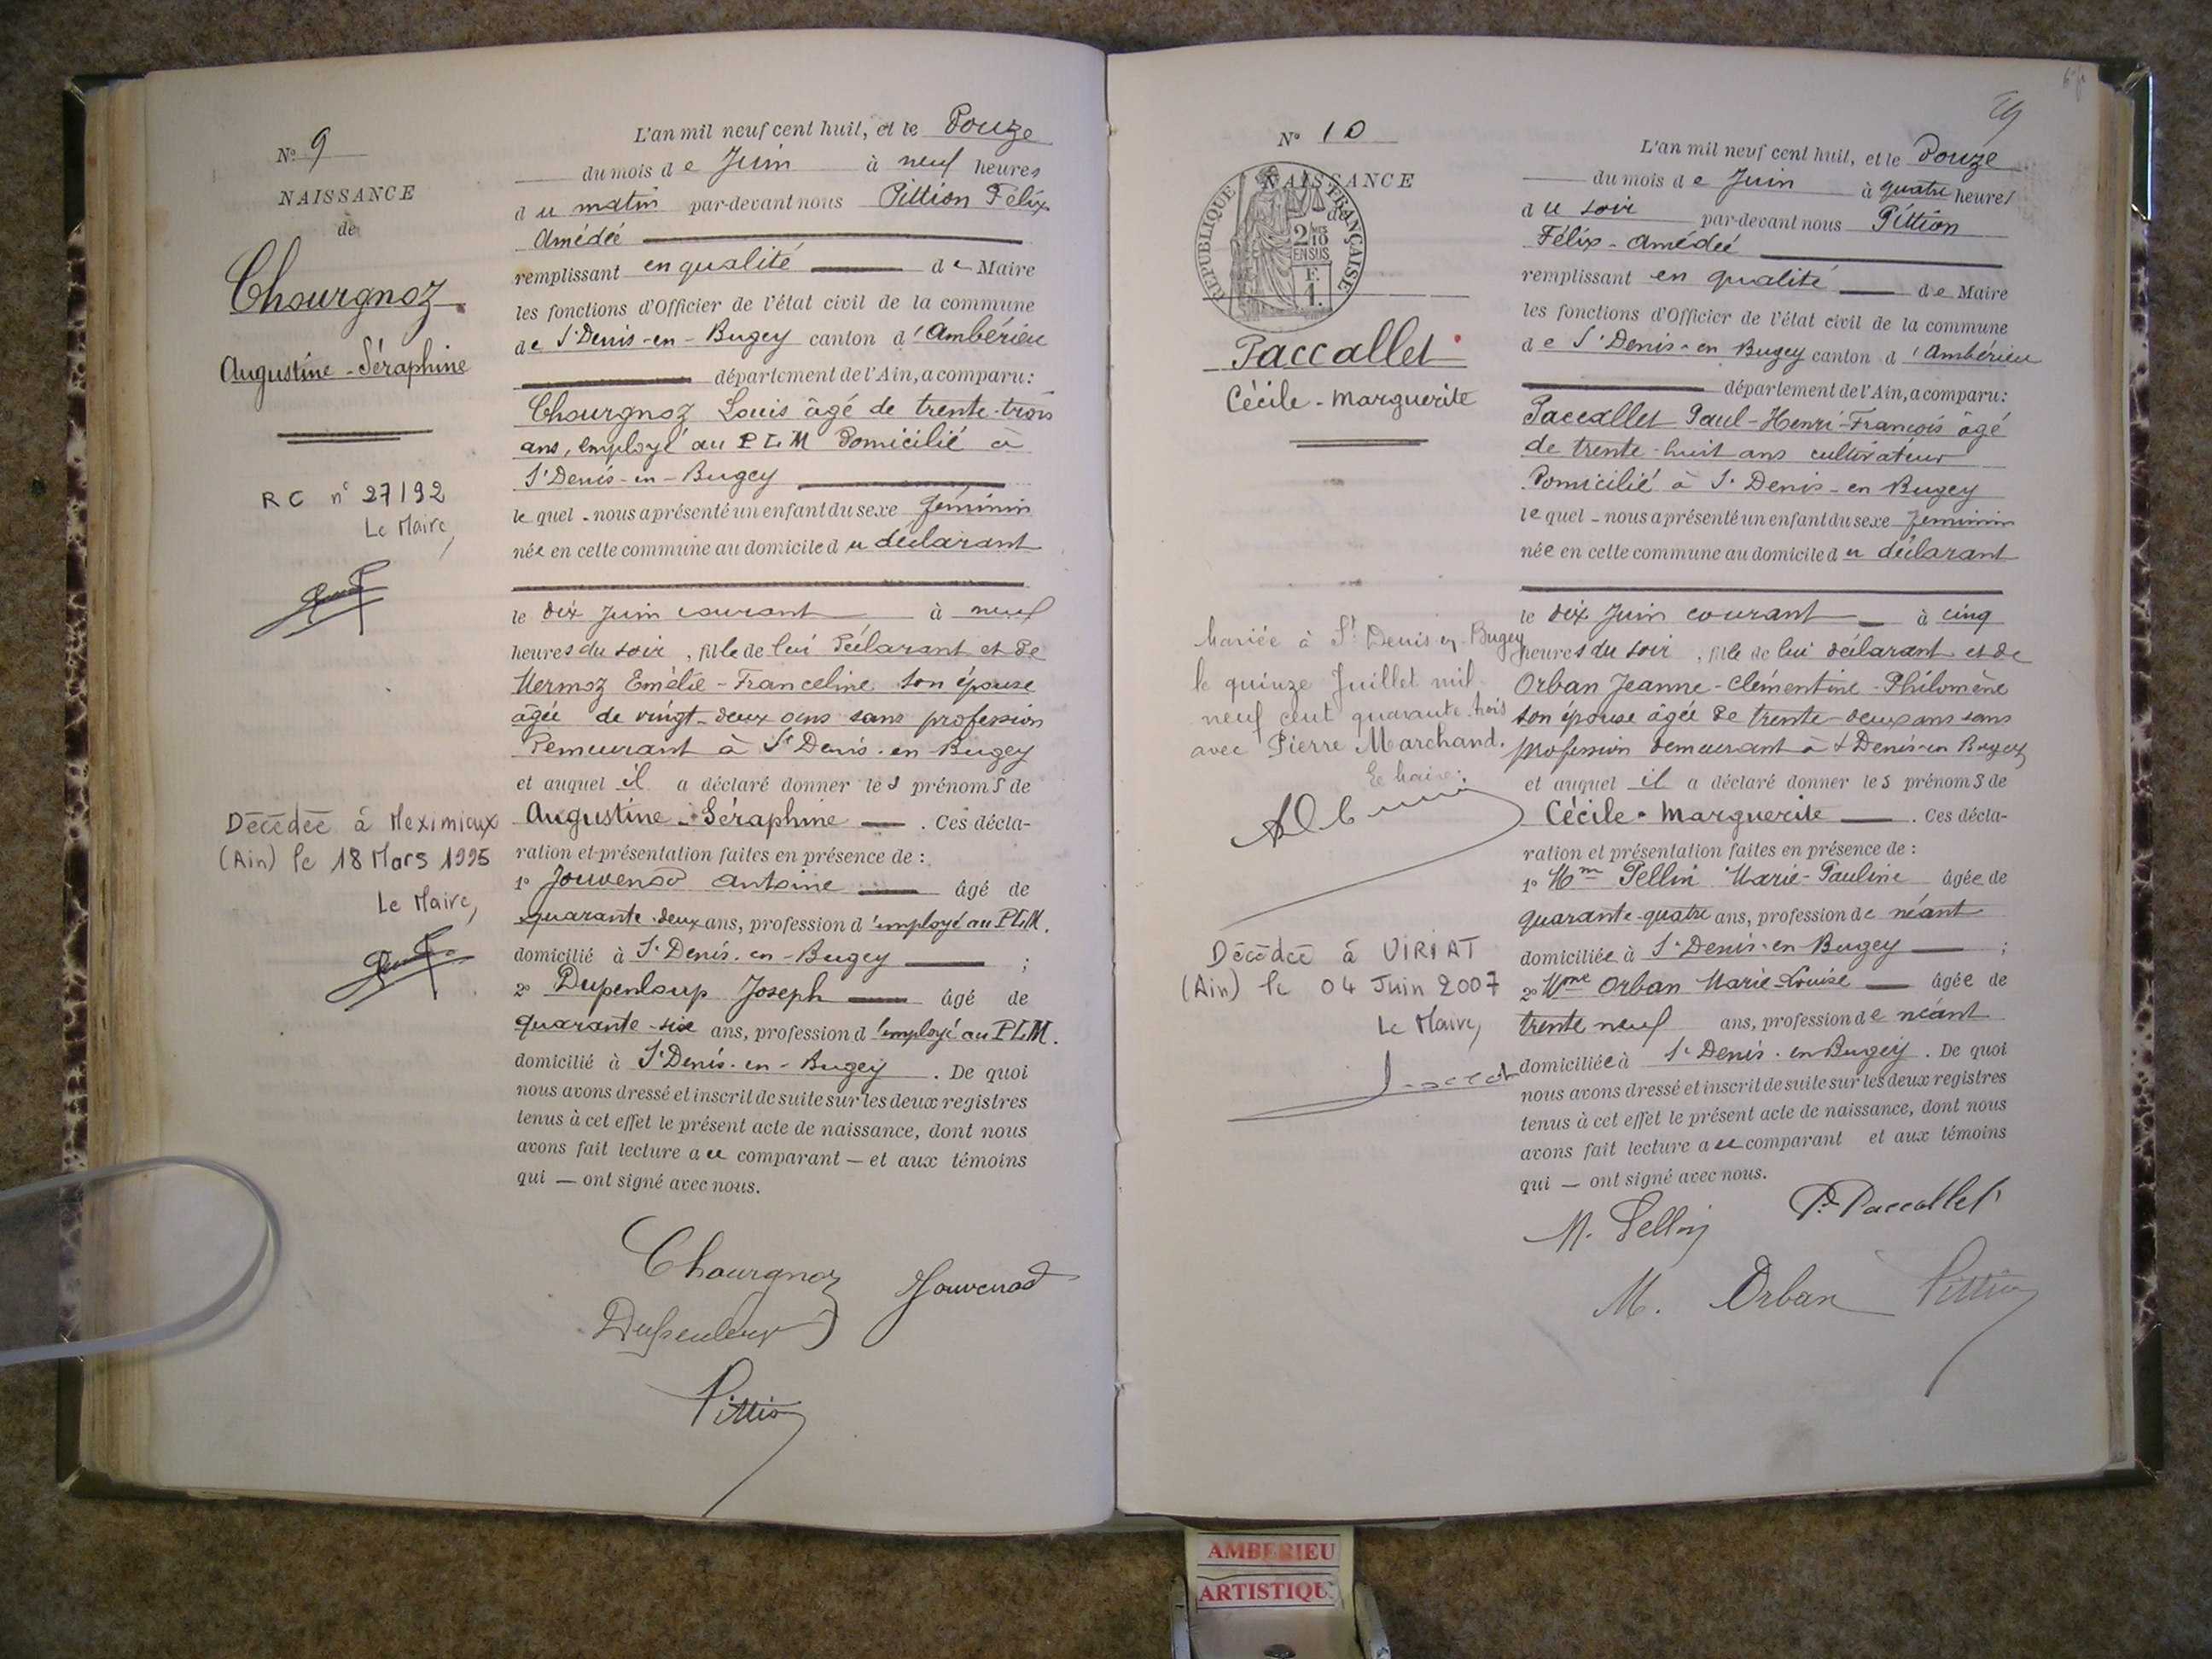 Nº 9
NAISSANCE
de
Chourgnoz
Augustine-Séraphine
RC n° 27192
Le Maire,
Décédée à Meximieux
(Ain) le 18 Mars 1995
Le Maire,
L'an mil neuf cent huit, et le Douze
du mois de Juin à neuf heures
du matin par-devant nous Pittion Félix
Amédée
remplissant en qualité de Maire
les fonctions d'Officier de l'état civil de la commune
de St Denis-en-Bugey canton d'Ambérieu
département de l'Ain, a comparu:
Chourgnoz Louis âgé de trente-trois
ans, employé au PLM Domicilié à
St Denis-en-Bugey
lequel nous a présenté un enfant du sexe féminin
née en cette commune au domicile du déclarant
le dix Juin courant à neuf
heures du soir, fille de lui Déclarant et de
Mermoz Emélie-Franceline son épouse
âgée de vingt-deux ans sans profession
Demeurant à St Denis-en-Bugey
et auquel il a déclaré donner les prénoms de
Augustine-Séraphine. Ces décla-
ration et présentation faites en présence de :
1º Jouvenod Antoine âgé de
quarante-deux ans, profession d'employé au PLM.
domicilié à St Denis-en-Bugey ;
2º Dupenloup Joseph âgé de
quarante-six ans, profession d'employé au PLM.
domicilié à St Denis-en-Bugey. De quoi
nous avons dressé et inscrit de suite sur les deux registres
tenus à cet effet le présent acte de naissance, dont nous
avons fait lecture au comparant — et aux témoins
qui — ont signé avec nous.
Chourgnoz Jouvenod
Dupenloup
Pittion
Nº 10
NAISSANCE
de
REPUBLIQUE FRANÇAISE
2/10
EN SUS
F.
1.
Paccallet
Cécile-Marguerite
Mariée à St Denis en Bugey
le quinze Juillet mil
neuf cent quarante trois
avec Pierre Marchand.
Le Maire:
Décédée à VIRIAT
(Ain) le 04 Juin 2007
Le Maire,
L'an mil neuf cent huit, et le Douze
du mois de Juin à quatre heures
du soir par-devant nous Pittion
Félix-Amédée
remplissant en qualité de Maire
les fonctions d'Officier de l'état civil de la commune
de St Denis-en Bugey canton d'Ambérieu
département de l'Ain, a comparu:
Paccallet Paul-Henri-François âgé
de trente-huit ans cultivateur
Domicilié à St Denis-en Bugey
lequel nous a présenté un enfant du sexe féminin
née en cette commune au domicile du déclarant
le dix Juin courant à cinq
heures du soir, fille de lui déclarant et de
Orban Jeanne-Clémentine-Philomène
son épouse âgée de trente-deux ans sans
profession demeurant à St Denis-en Bugey
et auquel il a déclaré donner les prénoms de
Cécile-Marguerite. Ces décla-
ration et présentation faites en présence de :
1º Mme Pellin Marie-Pauline âgée de
quarante-quatre ans, profession de néant
domiciliée à St Denis-en-Bugey ;
2º Mme Orban Marie-Louise âgée de
trente neuf ans, profession de néant
domiciliée à St Denis-en Bugey. De quoi
nous avons dressé et inscrit de suite sur les deux registres
tenus à cet effet le présent acte de naissance, dont nous
avons fait lecture au comparant et aux témoins
qui — ont signé avec nous.
M. Pellin P. Paccallet
M. Orban Pittion
AMBERIEU
ARTISTIQU